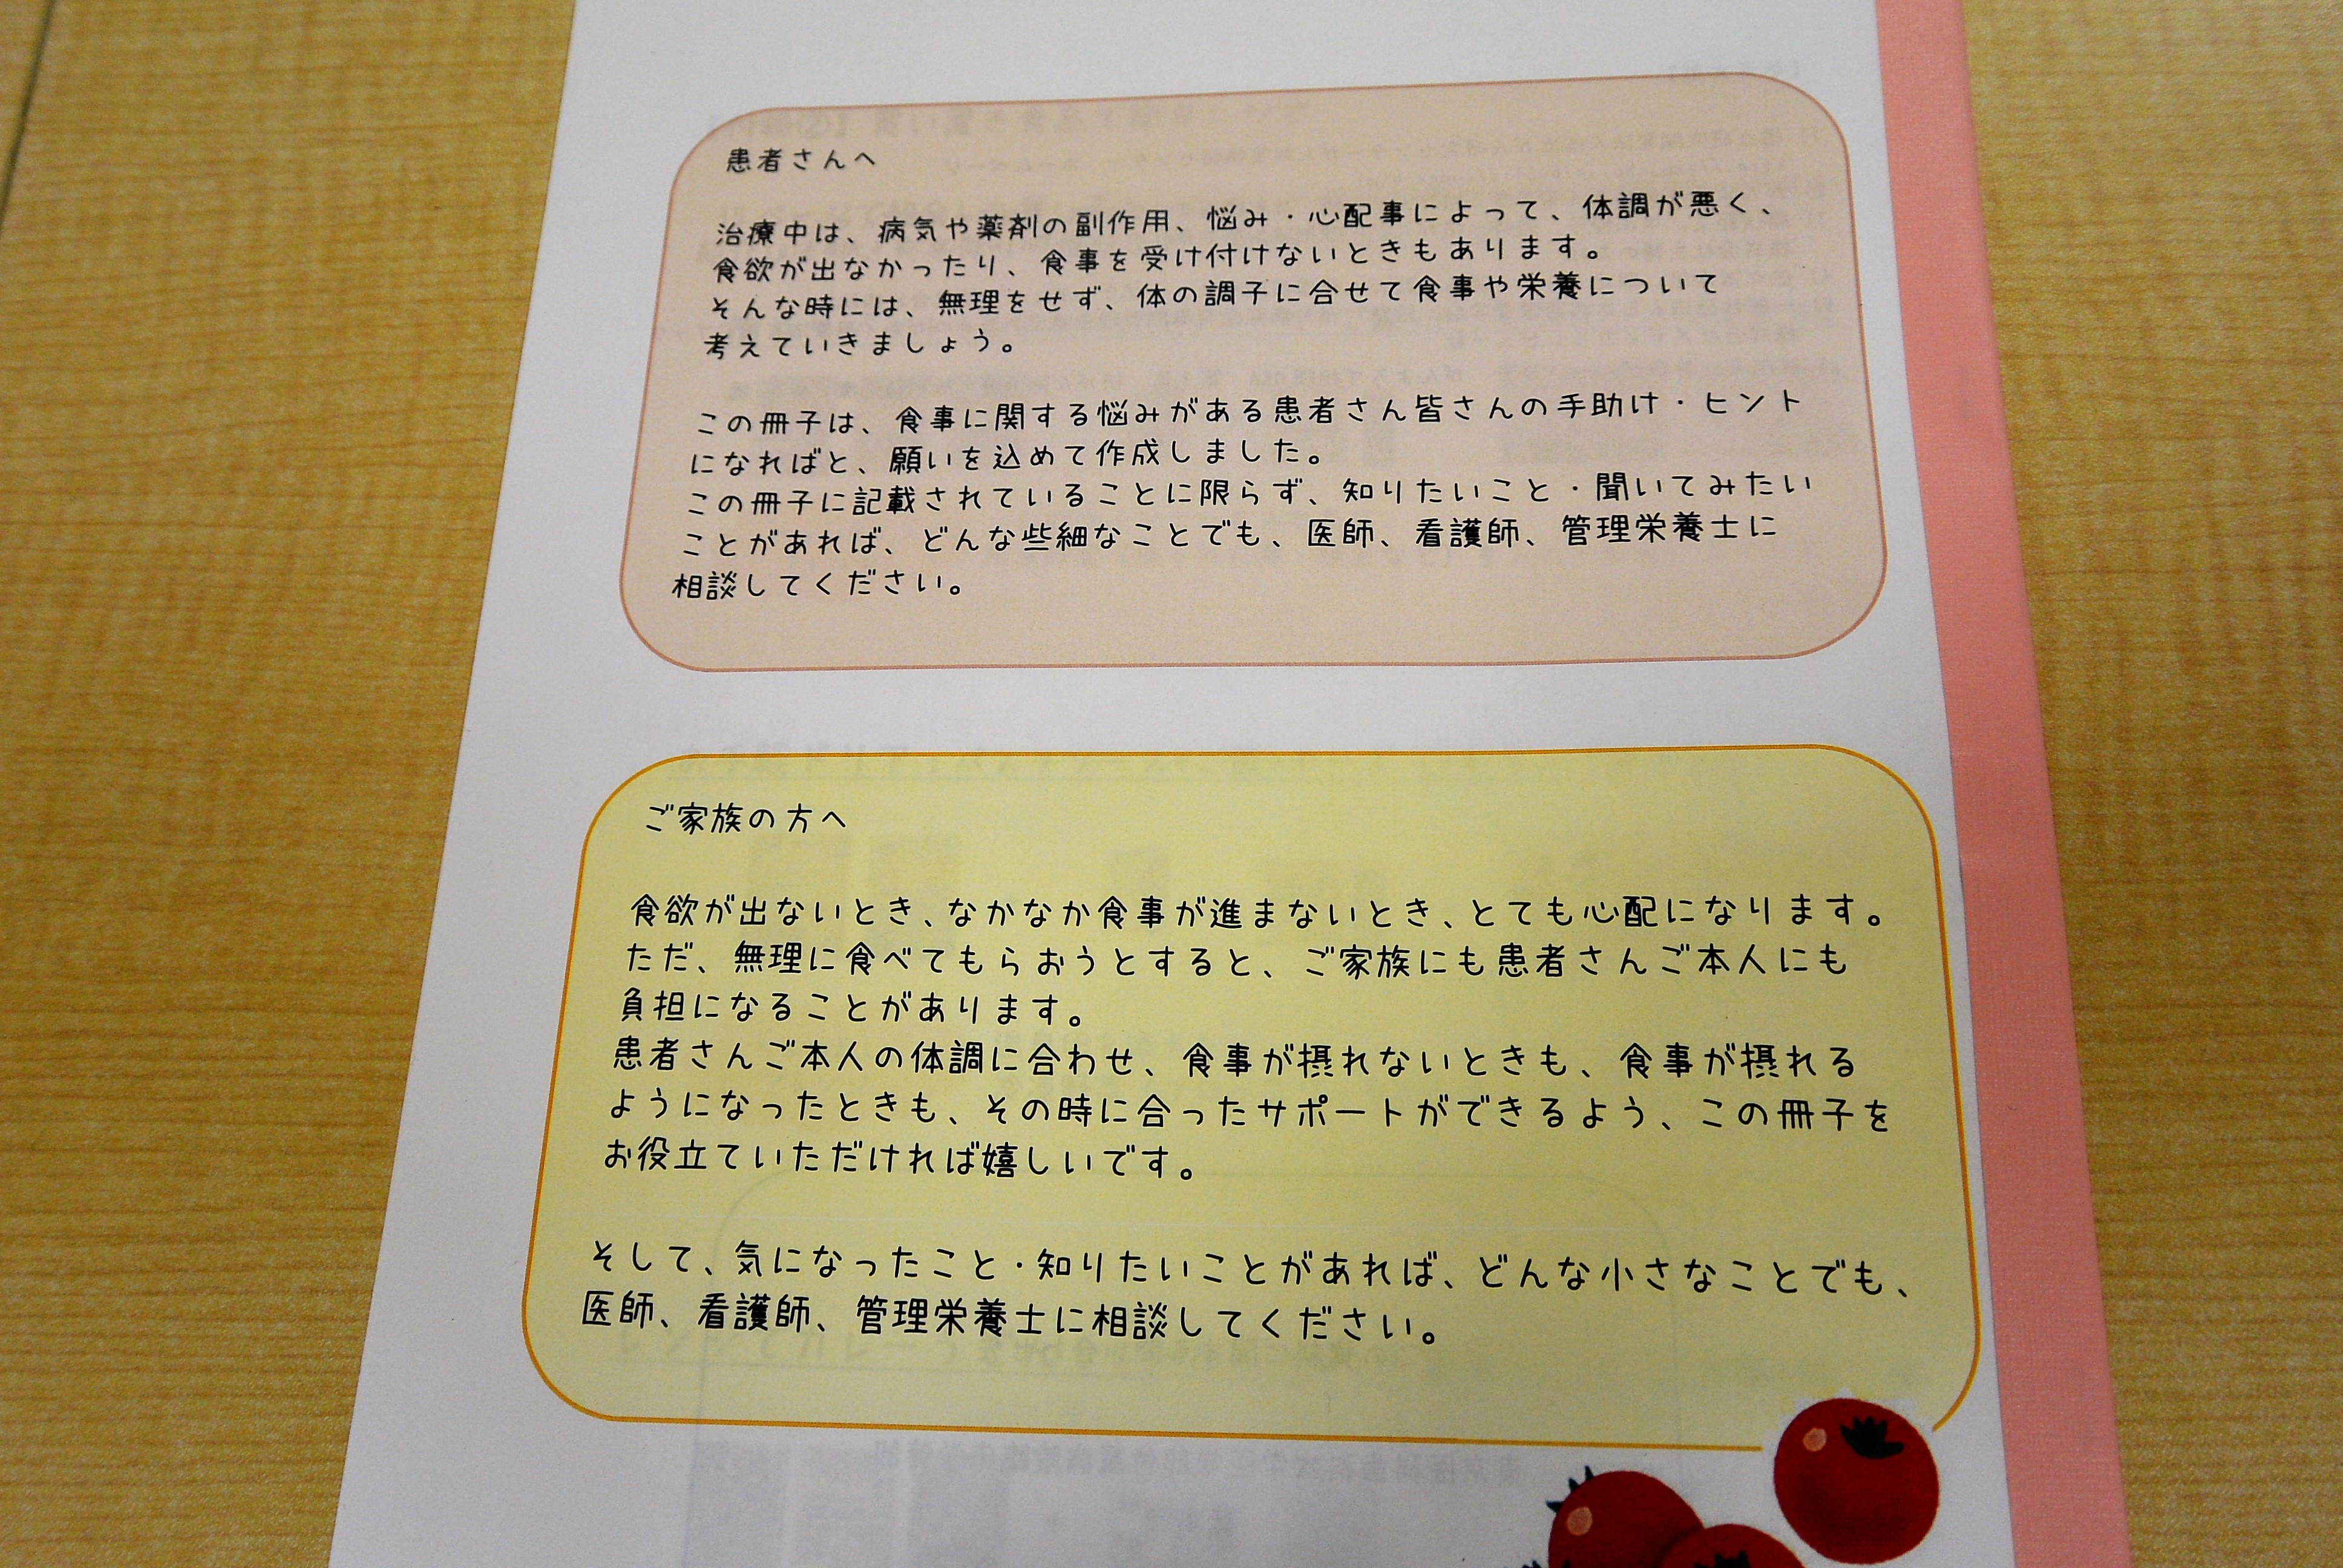 患者さんへ
治療中は、病気や薬剤の副作用、悩み・心配事によって、体調が悪く、
食欲が出なかったり、食事を受け付けないときもあります。
そんな時には、無理をせず、体の調子に合せて食事や栄養について
考えていきましょう。
この冊子は、食事に関する悩みがある患者さん皆さんの手助け・ヒント
になればと、願いを込めて作成しました。
この冊子に記載されていることに限らず、知りたいこと・聞いてみたい
ことがあれば、どんな些細なことでも、医師、看護師、管理栄養士に
相談してください。
ご家族の方へ
食欲が出ないとき、なかなか食事が進まないとき、とても心配になります。
ただ、無理に食べてもらおうとすると、ご家族にも患者さんご本人にも
負担になることがあります。
患者さんご本人の体調に合わせ、食事が摂れないときも、食事が摂れる
ようになったときも、その時に合ったサポートができるよう、この冊子を
お役立ていただければ嬉しいです。
そして、気になったこと・知りたいことがあれば、どんな小さなことでも、
医師、看護師、管理栄養士に相談してください。